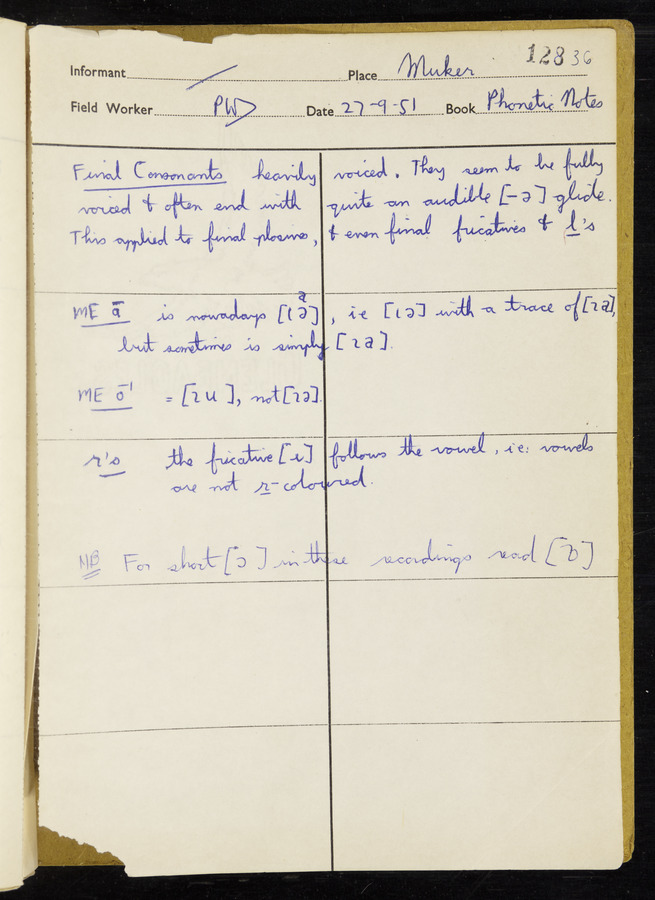 12836
Informant Place Muker
Field Worker PWD Date 27-9-51 Book Phonetic Notes
Final Consonants heavily voiced. They seem to be fully
voiced & often end with quite an audible [-ə] glide.
This applied to final plosives, & even final fricatives & l's
ME ā is nowadays [ɩəᵃ], ie [ɩə] with a trace of [ɩa],
but sometimes is simply [ɩa].
ME ō¹ = [ɩu], not [ɩə].
r's the fricative [ɹ] follows the vowel, ie: vowels
are not r-coloured.
NB For short [ɔ] in these recordings read [ɒ]